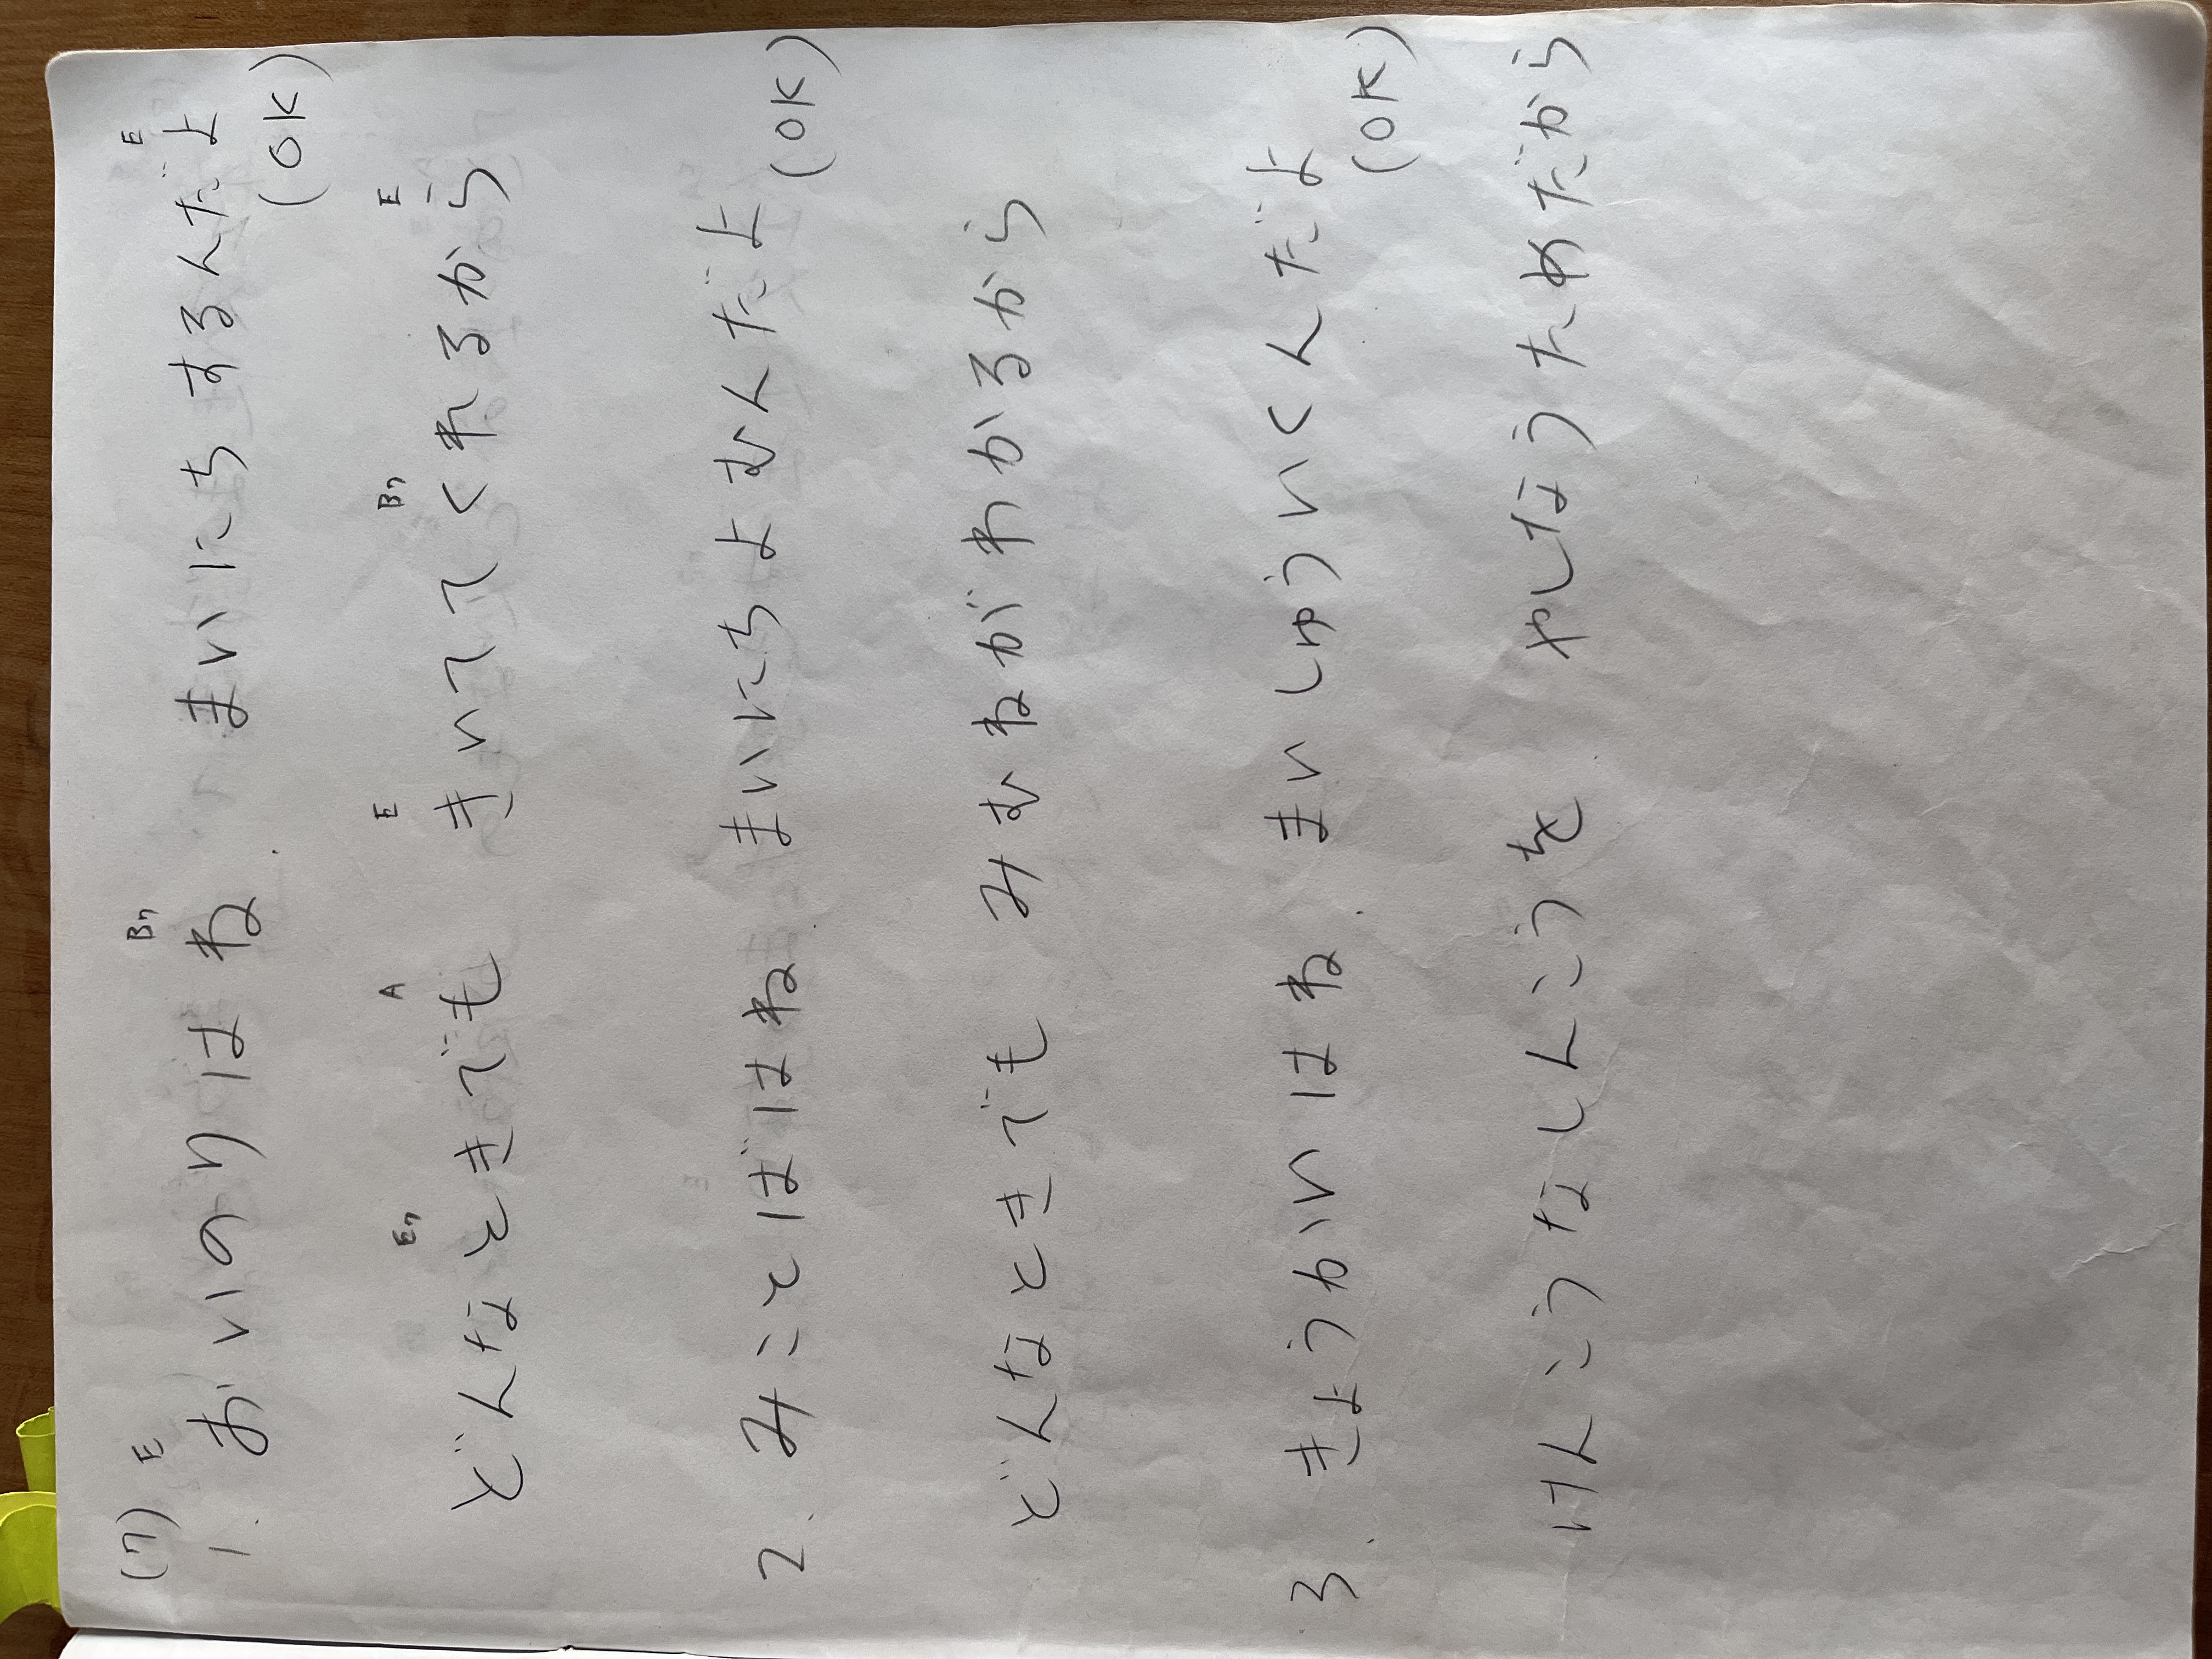 (7) E B7 E
1. おいのりはね まいにちするんだよ
(OK)
E7 A E B7 E
どんなときでも きいててくれるから
2. みことばはね まいにちよむんだよ
(OK)
どんなときでも みむねがわかるから
3. きょうかいはね まいしゅういくんだよ
(OK)
けんこうなしんこうを やしなうためだから